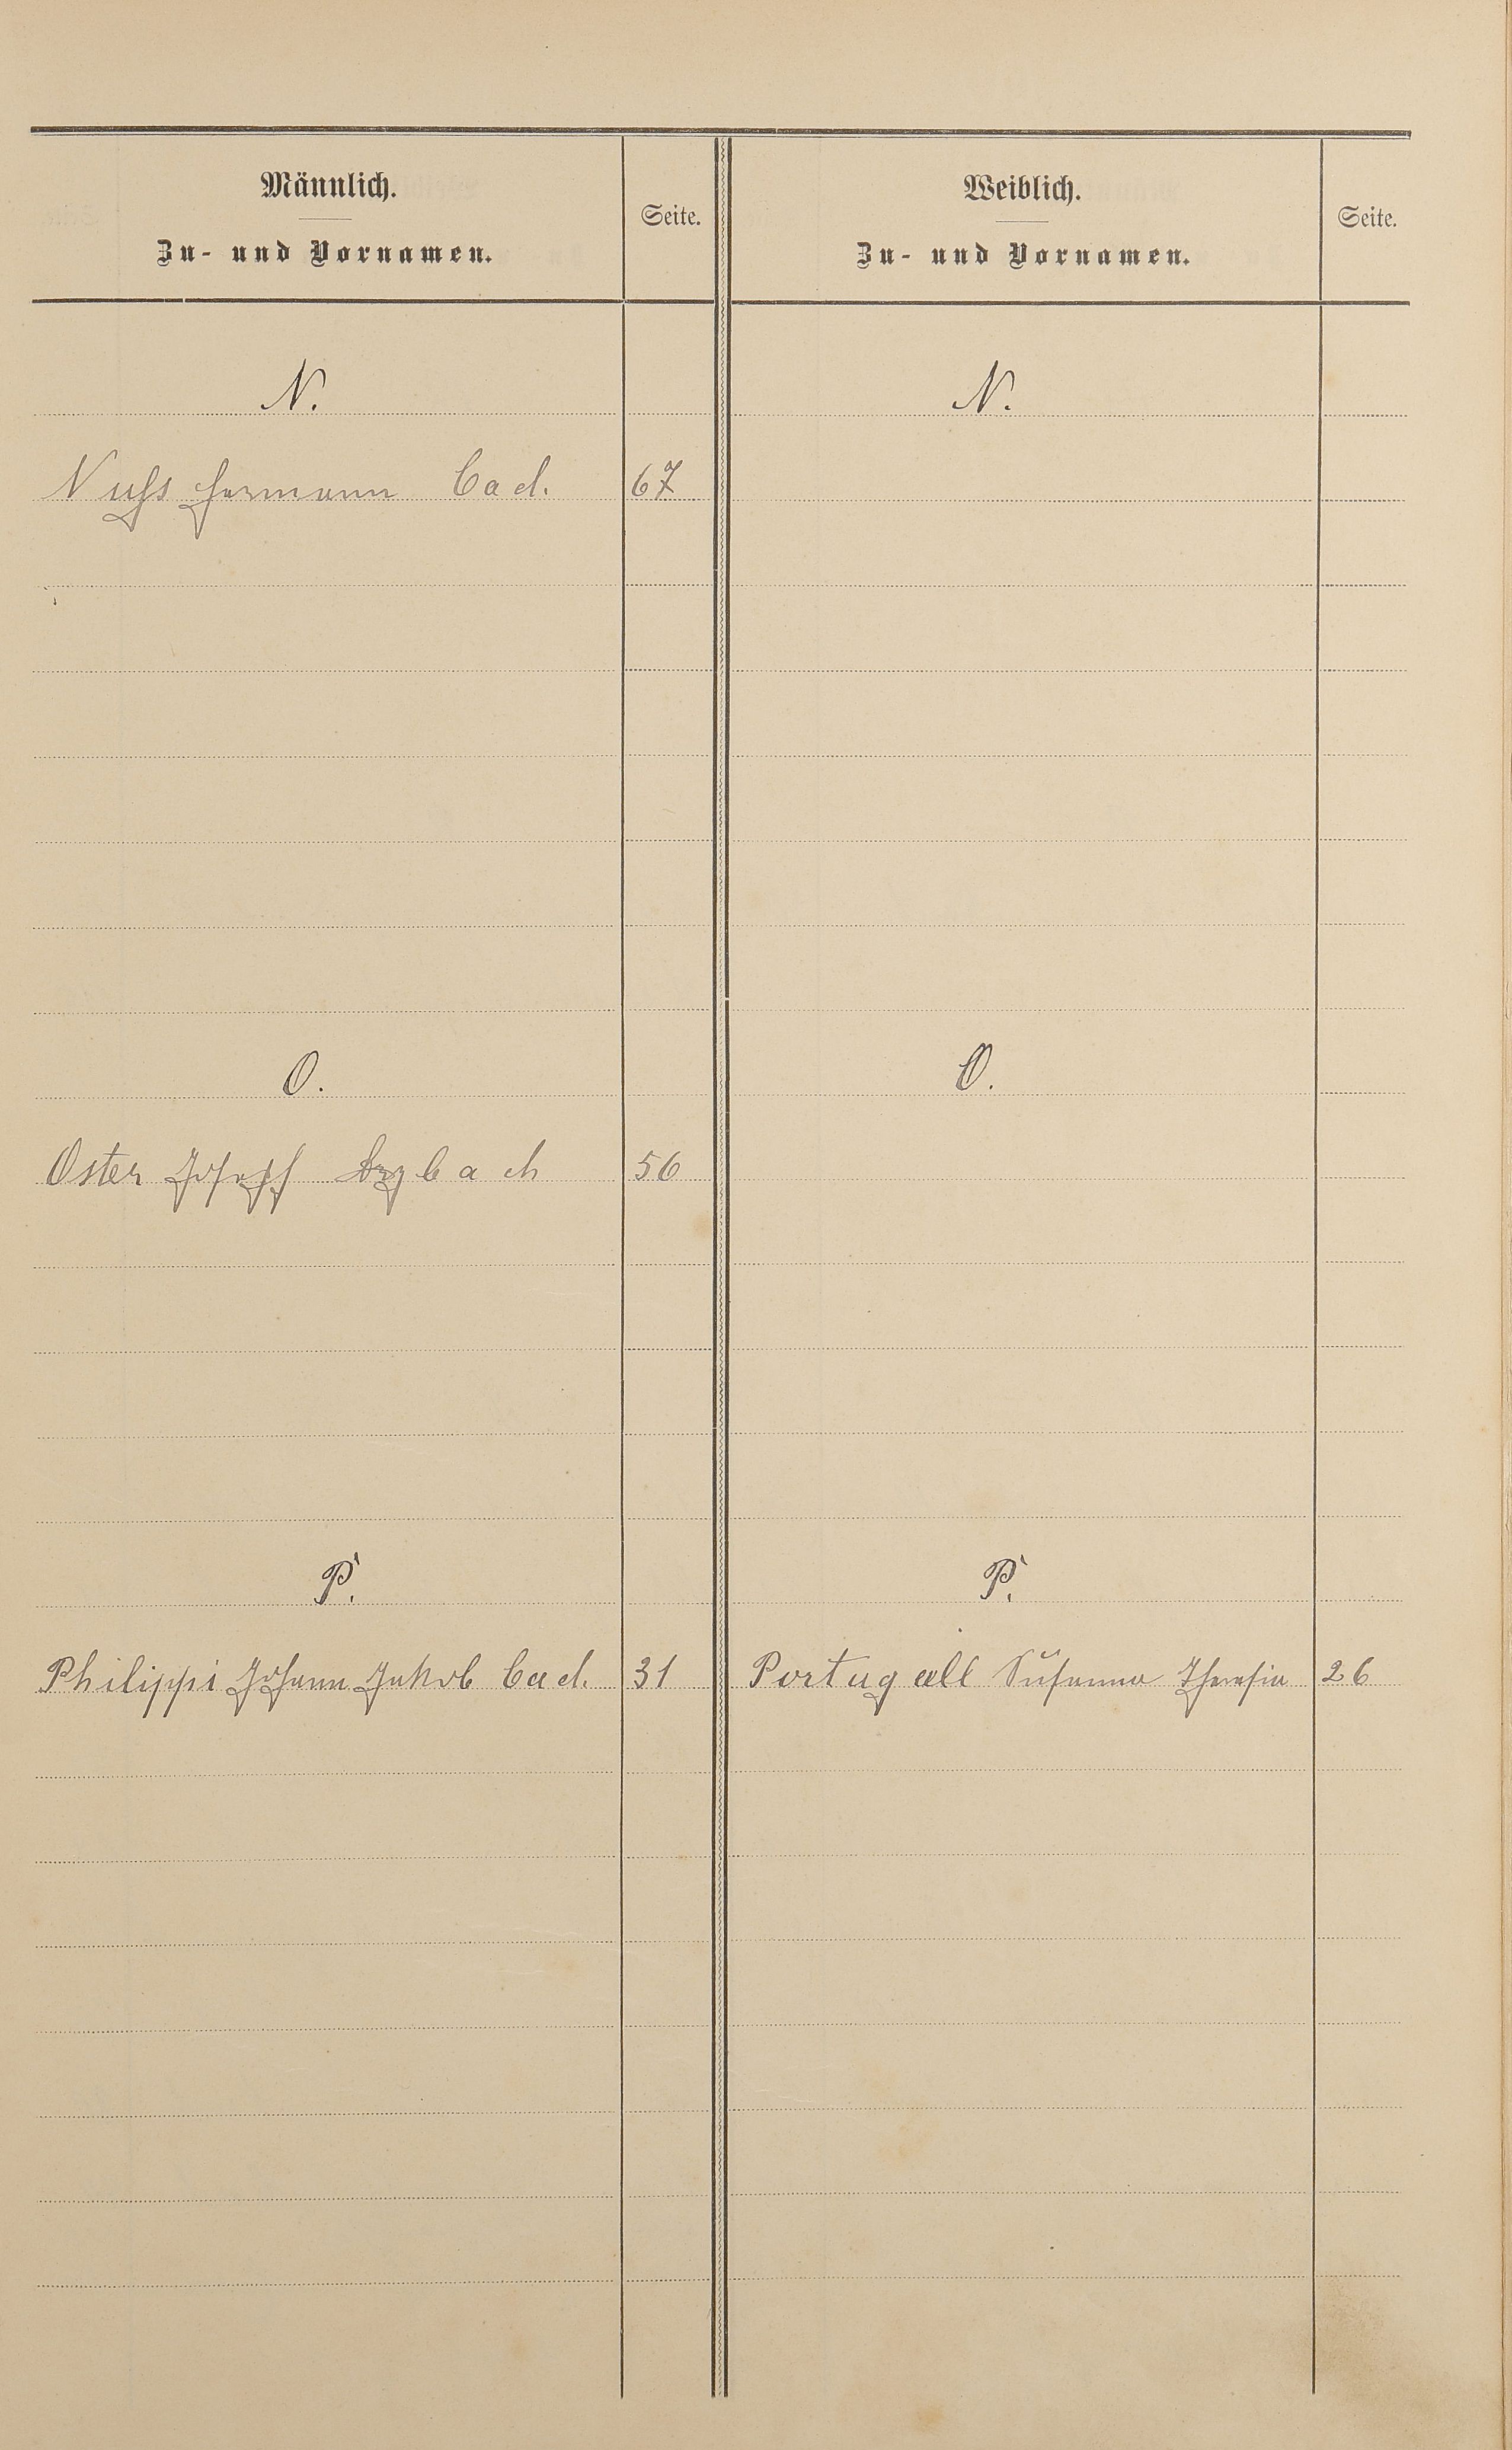 Männlich.
Zu- und Vornamen.
Seite.
Weiblich.
Zu- und Vornamen.
Seite.
N.
N.
Nuss Hermann Cad. 67
O.
O.
Oster Josef Arzbach 56
P.
P.
Philippi Johann Jakob Cad. 31
Portugall Susanna Theresia 26